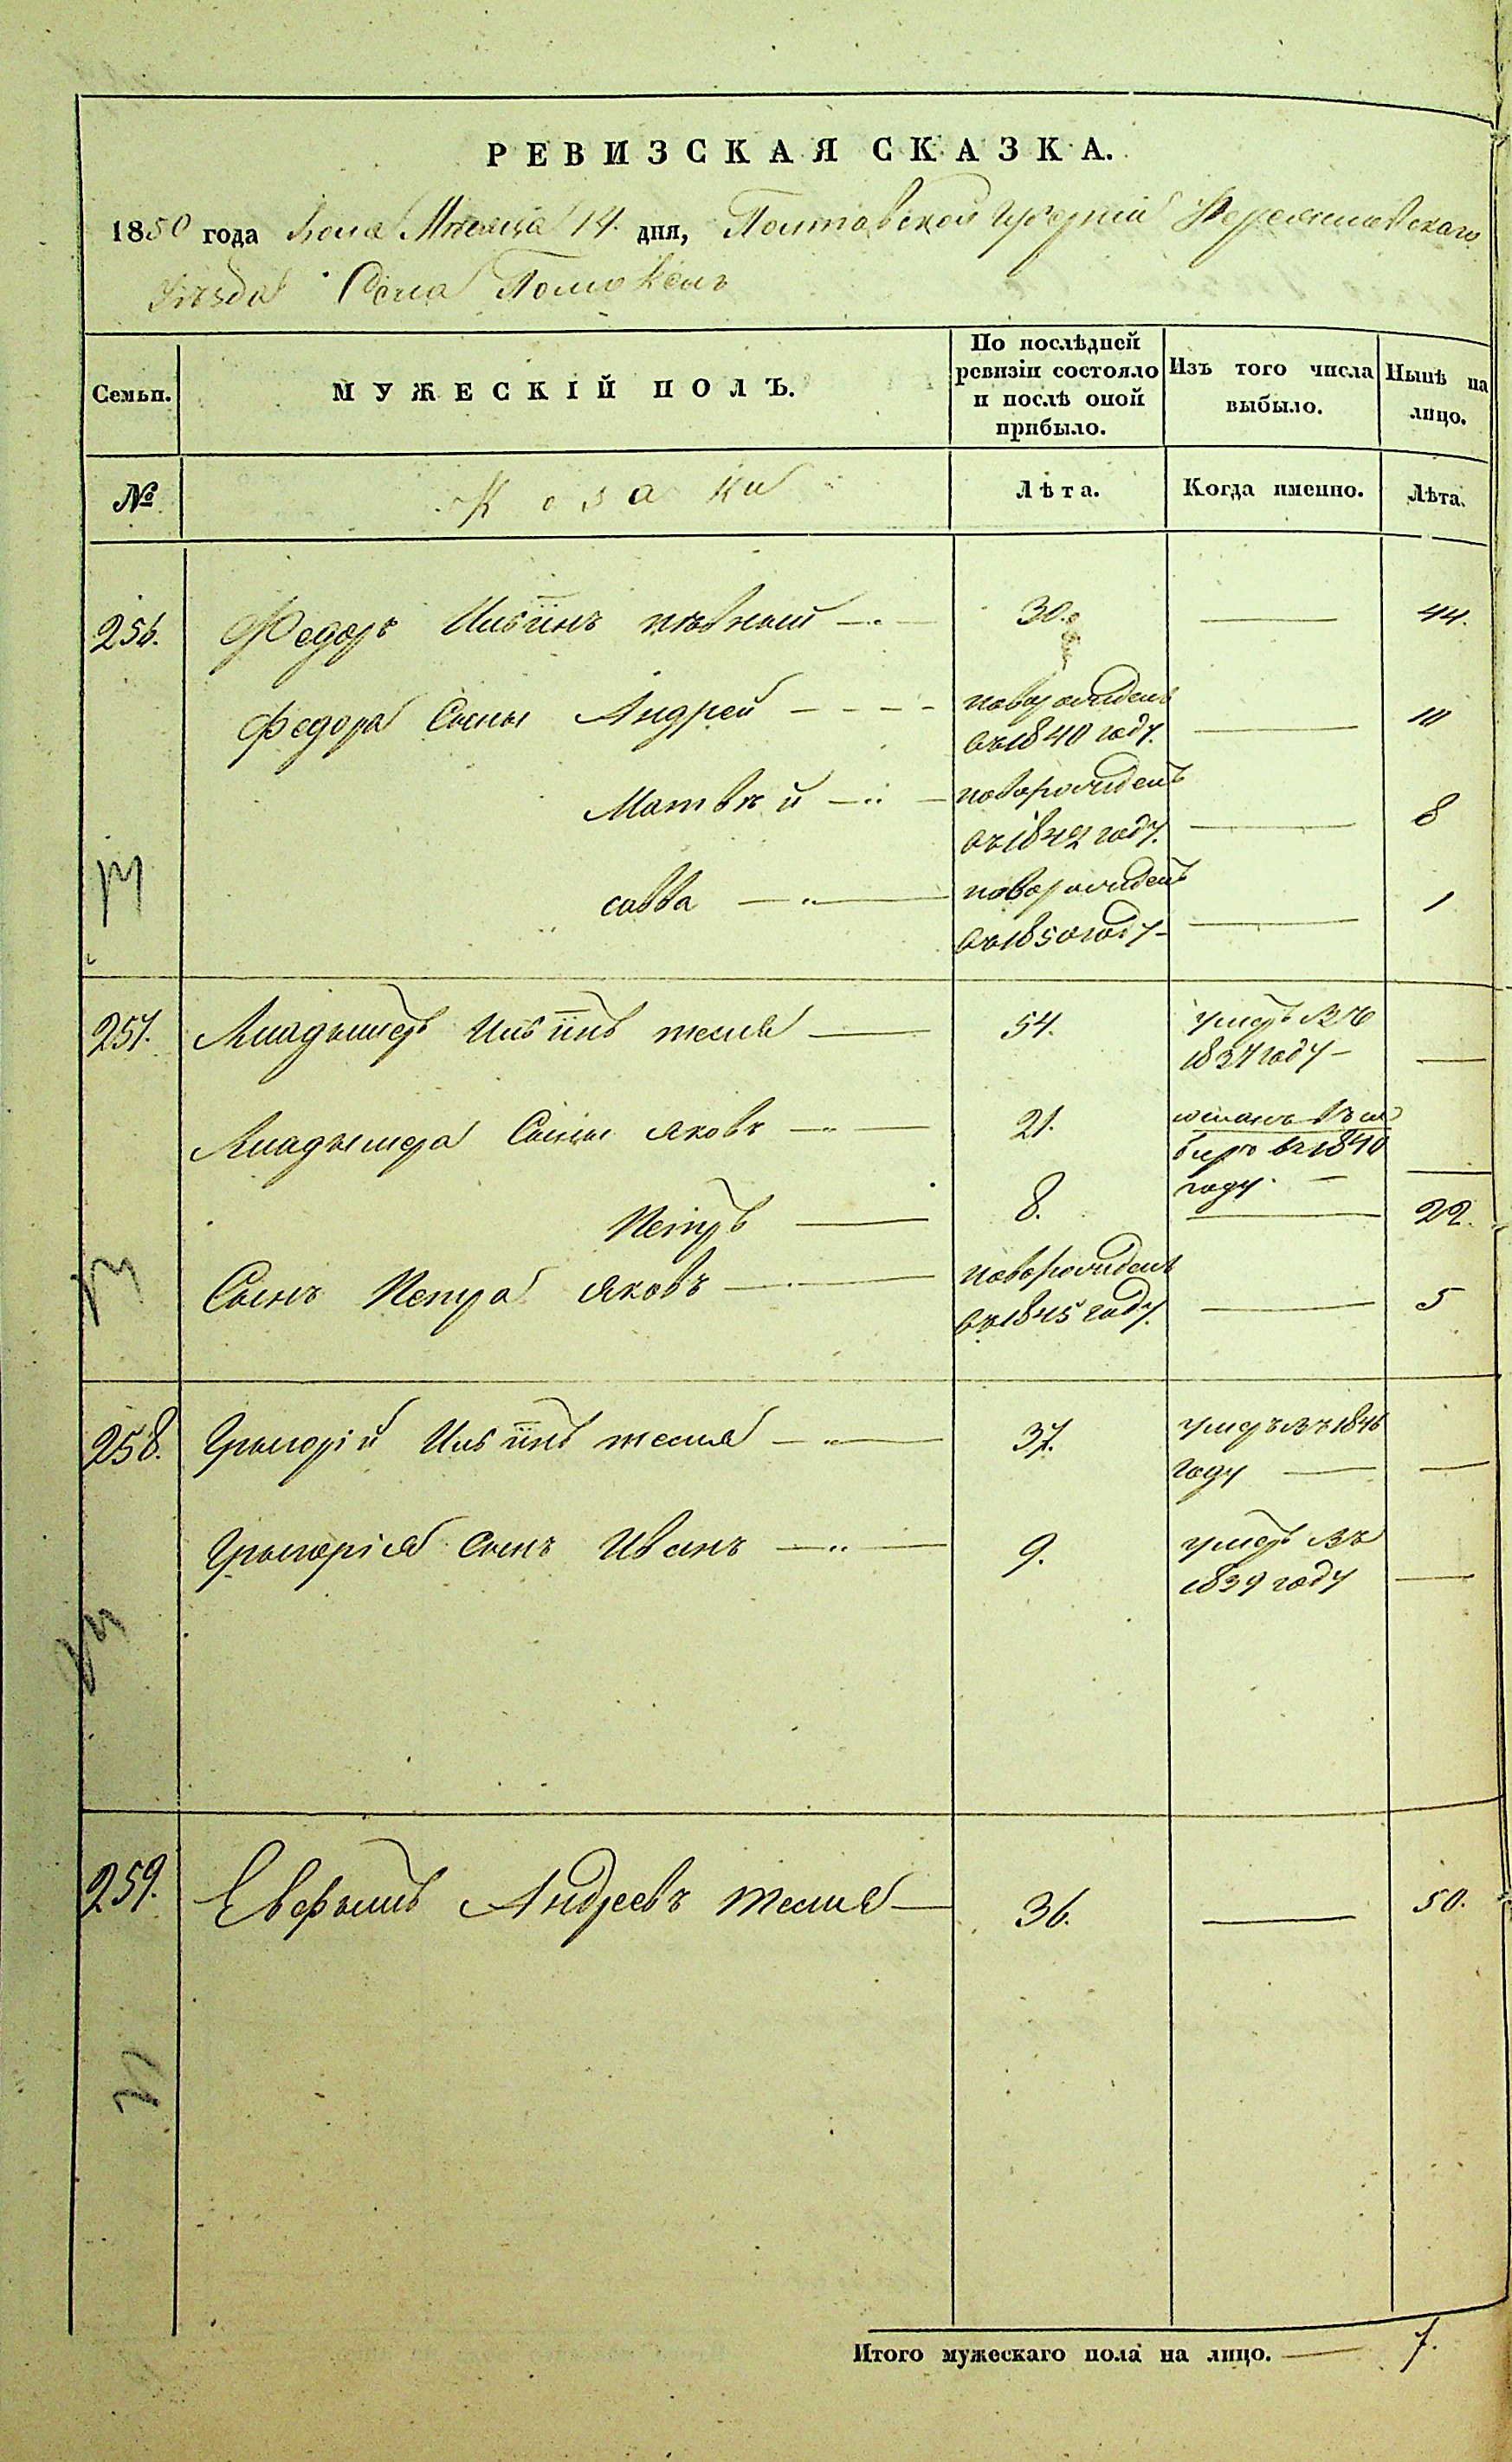 РЕВИЗСКАЯ СКАЗКА.
1850 года Іюля Мѣсяца 14. дня, Полтавской Губерніи Переяславскаго
Уѣзда Села Помоклъ
Семьи. МУЖЕСКІЙ ПОЛЪ. По послѣдней ревизіи состояло и послѣ оной прибыло. Изъ того числа выбыло. Нынѣ на лицо.
№ Козаки Лѣта. Когда именно. Лѣта.
256. Федоръ Ильинъ 30. 44.
Федора Сыны Андрей новорожденъ
въ 1840 году. 10
Матвѣй новорожденъ
въ 1842 году. 8
савва новорожденъ
въ 1850 году 1
257. Владымеръ Ильинъ 54. умеръ въ
1837 году
Владымера Сыны яковъ 21. въ
въ 1840
году
Петръ 8. 22.
Сынъ Петра яковъ новорожденъ
въ 1845 году. 5
258. Григорій Ильинъ 37. умеръ въ 1846
году
Григорія сынъ Иванъ 9. умеръ въ
1839 году
259. Андреевъ 36. 50.
Итого мужескаго пола на лицо. 7.